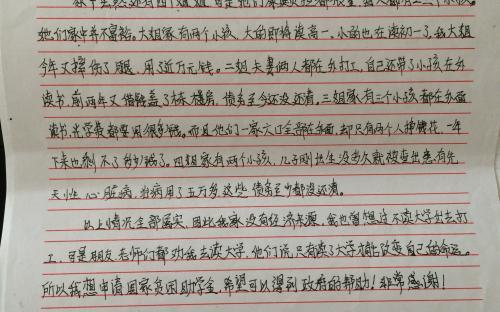 家中虽然还有四个姐姐,可是他们家庭负担都很重,每人都有二三个小孩。
她们家中并不富裕。大姐家有两个小孩,大的即将读高一,小的也在读初一了,我大姐
今年又摔伤了腿,用了近万元钱。二姐夫妻两人都在乡打工,自己还带了小孩在乡
读书,前两年又借钱盖了栋楼房,债务至今还没还清。三姐家有三个小孩都在外面
读书,光学费都要用很多钱。而且他们一家人口全部在外面,却只有两个人挣钱花,一年
下来也剩不了多少钱了。四姐家有两个小孩,儿子刚出生没多久就被查出患有先
天性心脏病,治病用了五万多,这些债务至少都没还清。
以上情况全部属实,因此我家没有经济来源,我也曾想过不读大学出去打
工,可是朋友、老师们都劝我去读大学,他们说只有读了大学才能改变自己的命运。
所以我想申请国家贫困助学金,希望可以得到政府的帮助!非常感谢!